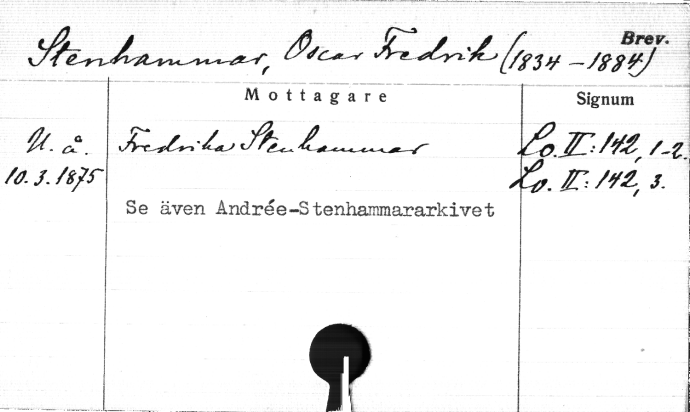 Brev.
Stenhammar, Oscar Fredrik (1834-1884)
Mottagare Signum
U. å. Fredrika Stenhammar Lo. II:142, 1-2.
10.3.1875 Lo. II:142, 3.
Se även Andrée-Stenhammararkivet